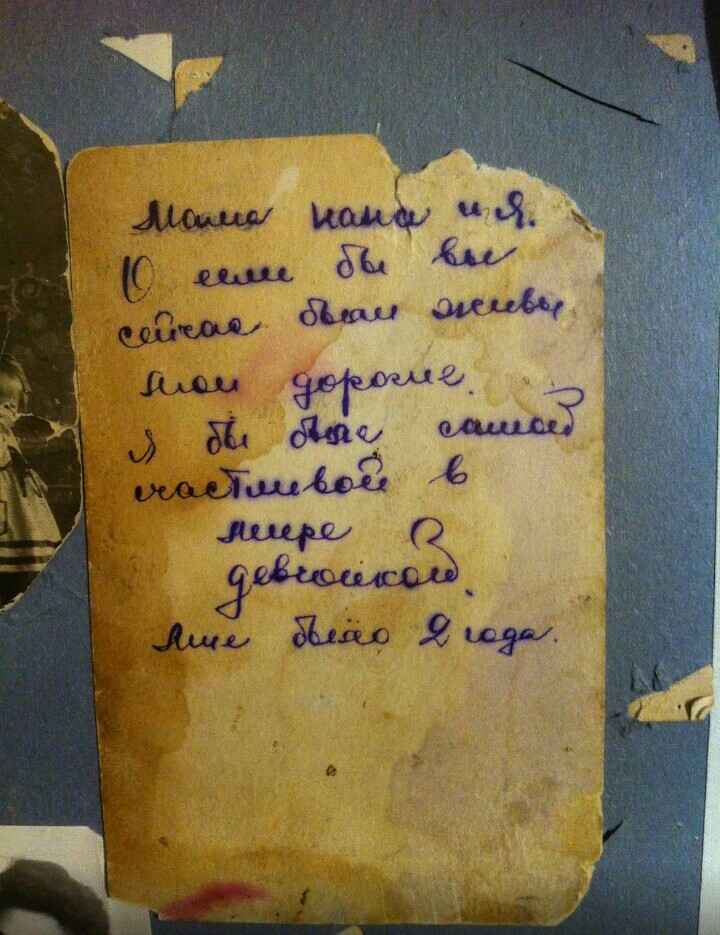 Мама папа и Я.
О если бы вы
сейчас были живы
мои дорогие.
я бы была самой
счастливой в
мире
девчонкой.
мне было 2 года.